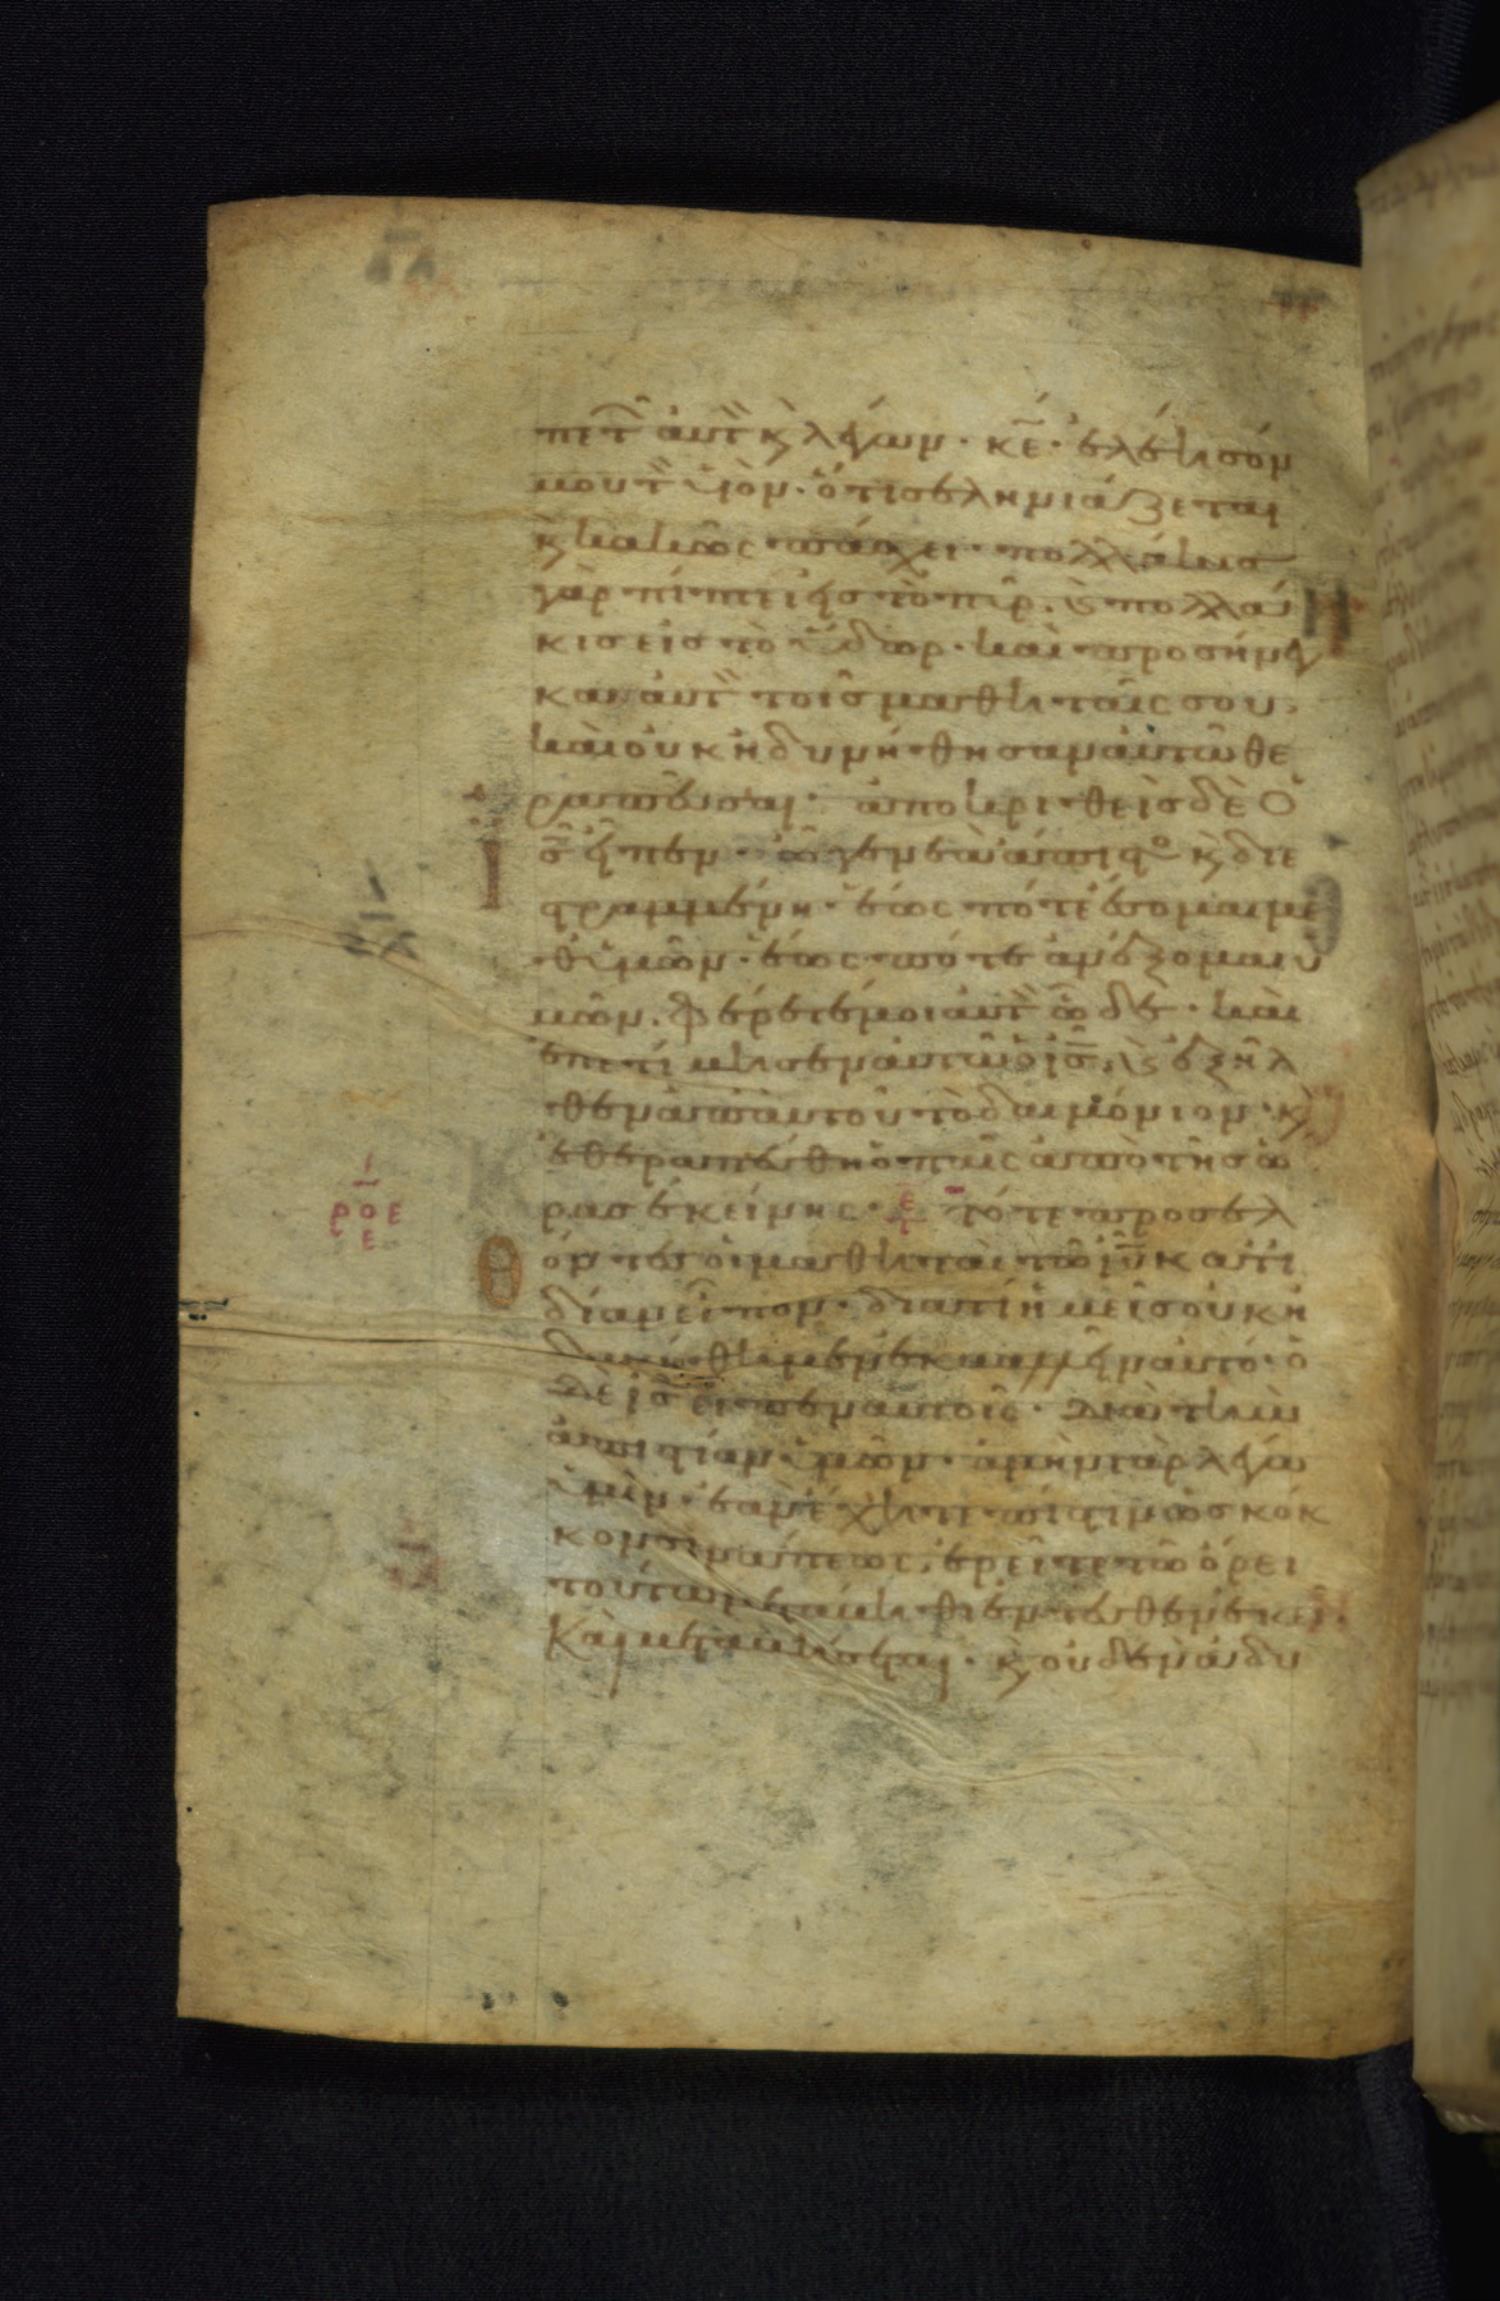 πετ αυτ κ λέγων · κε · ἐλέησόν
μου τ υἱὸν · ὅτι σεληνιάζεται
κ κακῶς πάσχει · πολλάκις
γὰρ πίπτει εἰς τὸ πῦρ · κ πολλά
κις εἰς τὸ ὕδωρ · καὶ προσήνεγ
κα αὐτ τοῖς μαθηταῖς σου ·
καὶ οὐκ ἠδυνήθησαν αὐτῶ θε
ραπεῦσαι · ἀποκριθεὶς δὲ ὁ
ις εἶπεν · ὦ γενεὰ ἄπιστο κ διε
στραμμένη · ἕως πότε ἔσομαι με
θ ὑμῶν · ἕως πότε ἀνέξομαι ὑ
μῶν · φέρετέ μοι αὐτ ὧδε · καὶ
ἐπετίμησεν αὐτῶ ὁ ις · κ ἐξῆλ
θεν ἀπ αὐτοῦ τὸ δαιμόνιον · κ
ἐθεραπεύθη ὁ παῖς ἀπὸ τῆς ὥ
ρας ἐκείνης · τότε προσελ
ροε
ε
θόντες οἱ μαθηταὶ τῶ ιυ κατ ἰ
δίαν εἶπον · διατί ἡμεῖς οὐκ ἠ
δυνήθημεν ἐκβαλεῖν αὐτό · ὁ
δὲ ις εἶπεν αὐτοῖς · διὰ τὴν
ἀπιστίαν ὑμῶν · ἀμὴν γὰρ λέγω
ὑμῖν · ἐὰν ἔχητε πίστιν ὡς κόκ
κον σινάπεως · ἐρεῖτε τῶ ὄρει
τούτω · μετάβηθι ἐντεῦθεν ἐκεῖ ·
καὶ μεταβήσεται · κ οὐδὲν ἀδυ